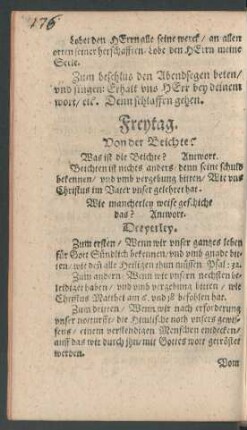 176
Lobet den HErrn alle seine werck / an allen
orten seiner herschafften / Lobe den HErrn meine
Seele.
Zum beschlus den Abendsegen beten /
vnd singen: Erhalt vns HErr bey deinem
wort / etc. Denn schlaffen gehen.
Freytag.
Von der Beichte?
Was ist die Beichte? Antwort.
Beichten ist nichts anders / denn seine schuld
bekennen / vnd vmb vergebung bitten / Wie vns
Christus im Vater vnser gelehret hat.
Wie mancherley weise geschicht
das? Antwort.
Dreyerley.
Zum ersten / Wenn wir vnser gantzes leben
für Gott Sündlich bekennen / vnd vmb gnade bit-
ten / wie denn alle Heiligen thun müssen. Psal: 32.
Zum andern / Wenn wir vnsern nechsten be-
leidiget haben / vnd vmb vergebung bitten / wie
Christus Matthei am 5. vnd 18 befohlen hat.
Zum dritten / Wenn wir nach erforderung
vnser notturfft / die heimliche noth vnsers gewis-
sens / einem verstendigen Menschen entdecken /
auff das wir durch jhn / mit Gottes wort getröstet
werden.
Vom